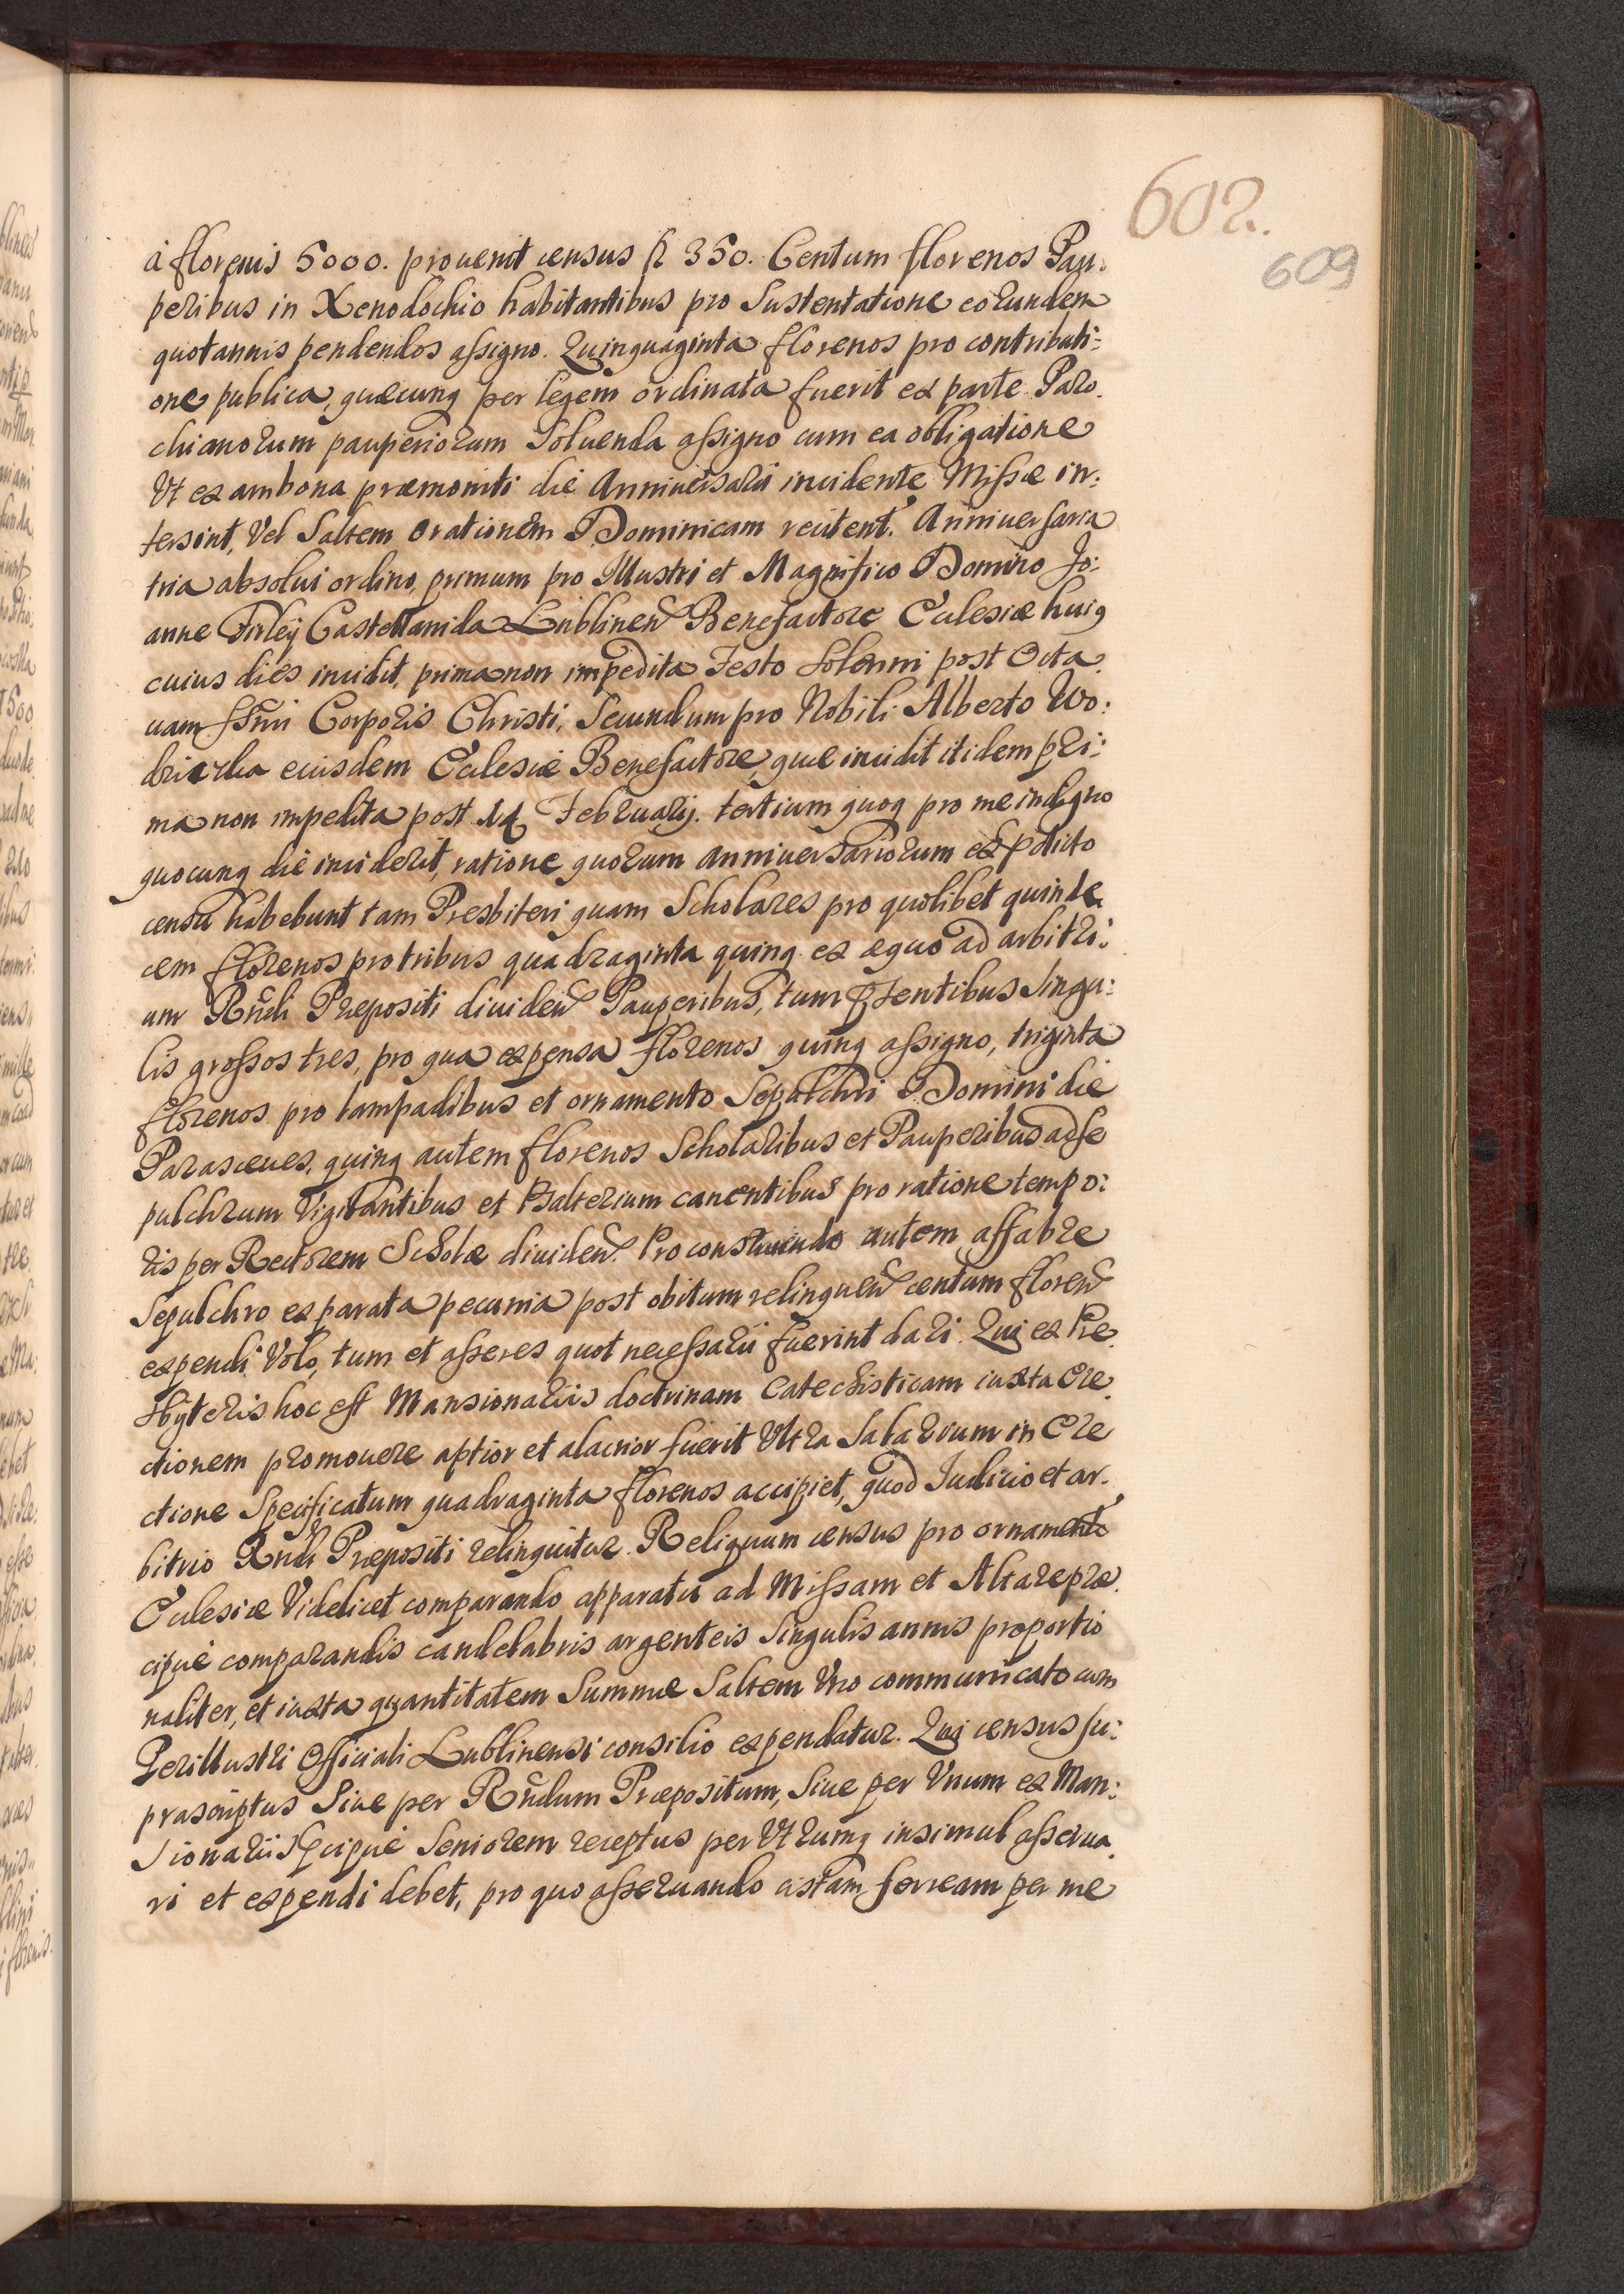 602.
609
à florenis 5000. prouenit census fl 350. Centum florenos Pau:
peribus in Xenodochio habitantibus pro Sustentatione eorundem
quotannis pendendos assigno. Quinquaginta florenos pro contributi:
one publica, quæcunq per legem ordinata fuerit ex parte Paro.
chianorum pauperiorum Soluenda assigno cum ea obligatione
Vt ex ambona præmoniti die Anniuersarii incidente Missæ in:
tersint, Vel Saltem Orationem Dominicam recitent. Anniuersaria
tria absolui ordino, primum pro Illustri et Magnifico Domino Jo:
anne Firleÿ Castellanida Lublinen Benefactore Eclesiæ huig
cuius dies incidit, prima non impedita Festo Solenni post Octa.
uam SSmi Corporis Christi, Secundum pro Nobili Alberto Wo:
eiusdem Eclesiæ Benefactore, quæ incidit itidem pri:
ma non impedita post 14 Februarij. tertium quoq pro me indigno
quocunq die inciderit, ratione quorum Anniuersariorum ex pdicto
censu habebunt tam Presbiteri quam Scholares pro quolibet quinde.
cem florenos pro tribus quadraginta quinq ex æquo ad arbitri:
um Rndi Præpositi diuiden Pauperibus, tum pntentibus Singu:
lis grossos tres, pro qua expensa florenos quinq assigno, triginta
florenos pro lampadibus et ornamento Sepulchri Domini die
Parasceues, quinq autem florenos Scholaribus et Pauperibus ad se
pulchrum Vigilantibus et Psalterium canentibus pro ratione tempo:
ris per Rectorem Scholæ diuiden. Pro construendo autem affabre
Sepulchro ex parata pecunia post obitum relinquen centum floren
expendi Volo, tum et asseres quot necessarii fuerint dari. Qui ex Pre.
sbÿteris hoc est Mansionariis doctrinam Catechisticam iuxta Ere.
ctionem promouere aptior et alacrior fuerit Vltra Salarium in Ere
ctione Specificatum quadraginta florenos accipiet, quod Judicio et ar.
bitrio Rndi Præpositi relinquitur. Reliquum census pro ornamento
Eclesiæ Videlicet comparando apparatu ad Missam et Altare præ.
cipuè comparandis candelabris argenteis Singulis annis proportio
naliter, et iuxta quantitatem Summæ Saltem Vno communicato cum
Perillustri Officiali Lublinensi consilio expendatur. Qui census su:
prascriptus Siue per Rndum Præpositum, Siue per Vnum ex Man:
Sionariis pcipuè Seniorem receptus per Vtrumq insimul asserua.
ri et expendi debet, pro quo asseruando cistam ferream per me